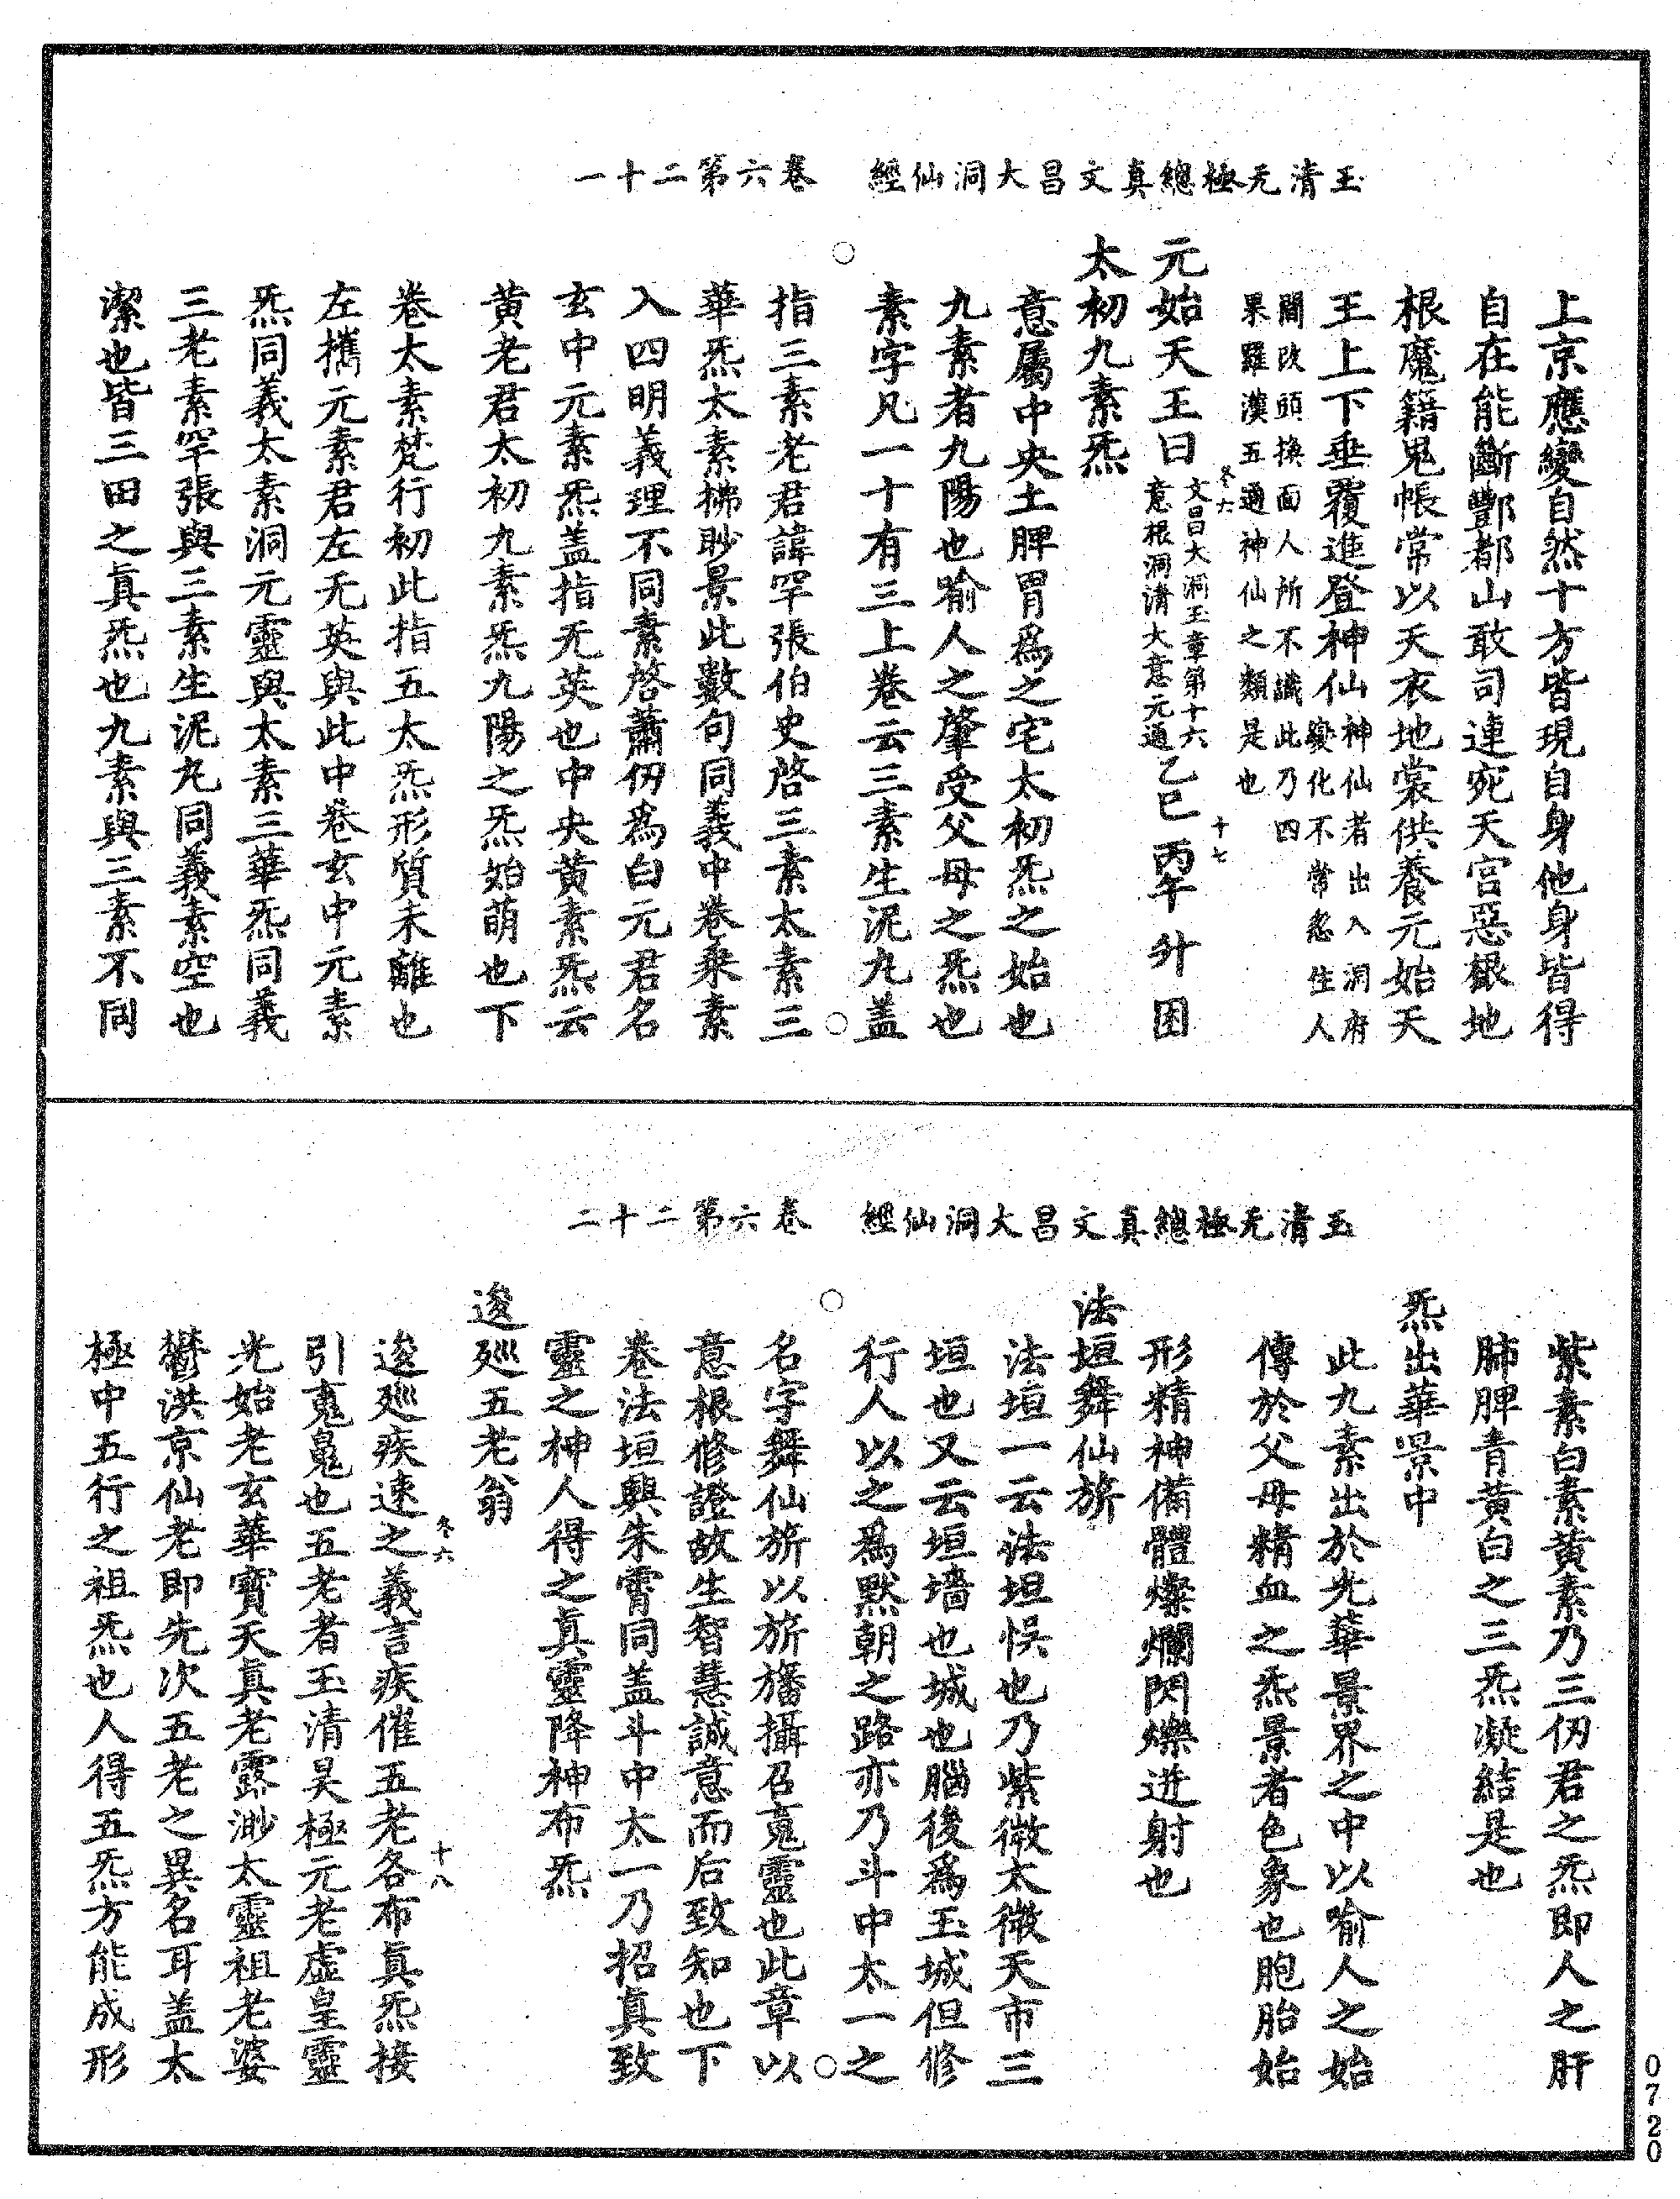 玉清无極總真文昌大洞仙經　卷六第二十一
上京應變自然十方皆現自身他身皆得
自在能斷酆都山敢司連宛天宫惡根地
根魔籍鬼帳常以天衣地裳供養元始天
王上上下垂覆進登神仙神仙者出入洞府
變化不常忽生人
間改頭換面人所不識此乃四
果羅漢五通神仙之類是也
元始天王曰文昌大洞玉章第十六
意根洞清大意元通乙巳丙午升困
冬六
十七
太初九素炁
意屬中央土脾胃爲之宅太初炁之始也
九素者九陽也喻人之肇受父母之炁也
素字凡一十有三上卷云三素生泥丸盖
指三素老君諱罕張伯史啓三素太素三
華炁太素拂眇景此數句同義中卷乘素
入四明義理不同素啓蕭仞爲白元君名
玄中元素炁盖指无英也中央黄素炁云
黄老君太初九素炁九陽之炁始萌也下
卷太素梵行初此指五太炁形質未離也
左攜元素君左无英與此中卷玄中元素
炁同義太素洞元靈與太素三華炁同義
三老素罕張與三素生泥丸同義素空也
潔也皆三田之眞炁也九素與三素不同
玉清无極總真文昌大洞仙經　卷六第二十二
紫素白素黄素乃三仞君之炁即人之肝
肺脾青黄白之三炁凝結是也
炁出華景中
此九素出於光華景界之中以喻人之始
傳於父母精血之炁景者色象也胞胎始
形精神備體燦爛閃爍迸射也
法垣舞仙旂
法垣一云法坦悮也乃紫微太微天市三
垣也又云垣墻也城也腦後爲玉城但修
行人以之爲默朝之路亦乃斗中太一之
名字舞仙旂以旂旛攝召䰟靈也此章以
意根修證故生智慧誠意而后致知也下
卷法垣興朱霄同盖斗中太一乃招真致
靈之神人得之眞靈降神布炁
逡廵五老翁
逡廵疾速之義言疾催五老各布眞炁接
冬六
十八
引䰟鬼也五老者玉清昊極元老虚皇靈
光始老玄華寳天眞老露渺太靈祖老婆
鬱洪京仙老即先次五老之異名耳盖太
極中五行之祖炁也人得五炁方能成形
0720